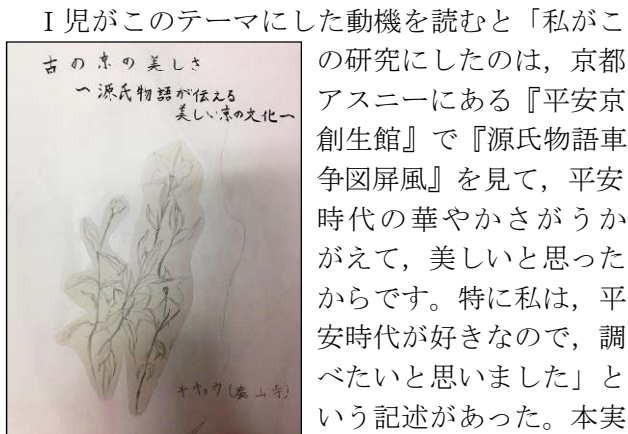 I児がこのテーマにした動機を読むと「私がこ
の研究にしたのは，京都
アスニーにある『平安京
創生館』で『源氏物語車
争図屏風』を見て，平安
時代の華やかさがうか
がえて，美しいと思った
からです。特に私は，平
安時代が好きなので，調
べたいと思いました」と
いう記述があった。本実
古の京の美しさ
〜源氏物語が伝える
美しい京の文化〜
キキョウ(廬山寺)